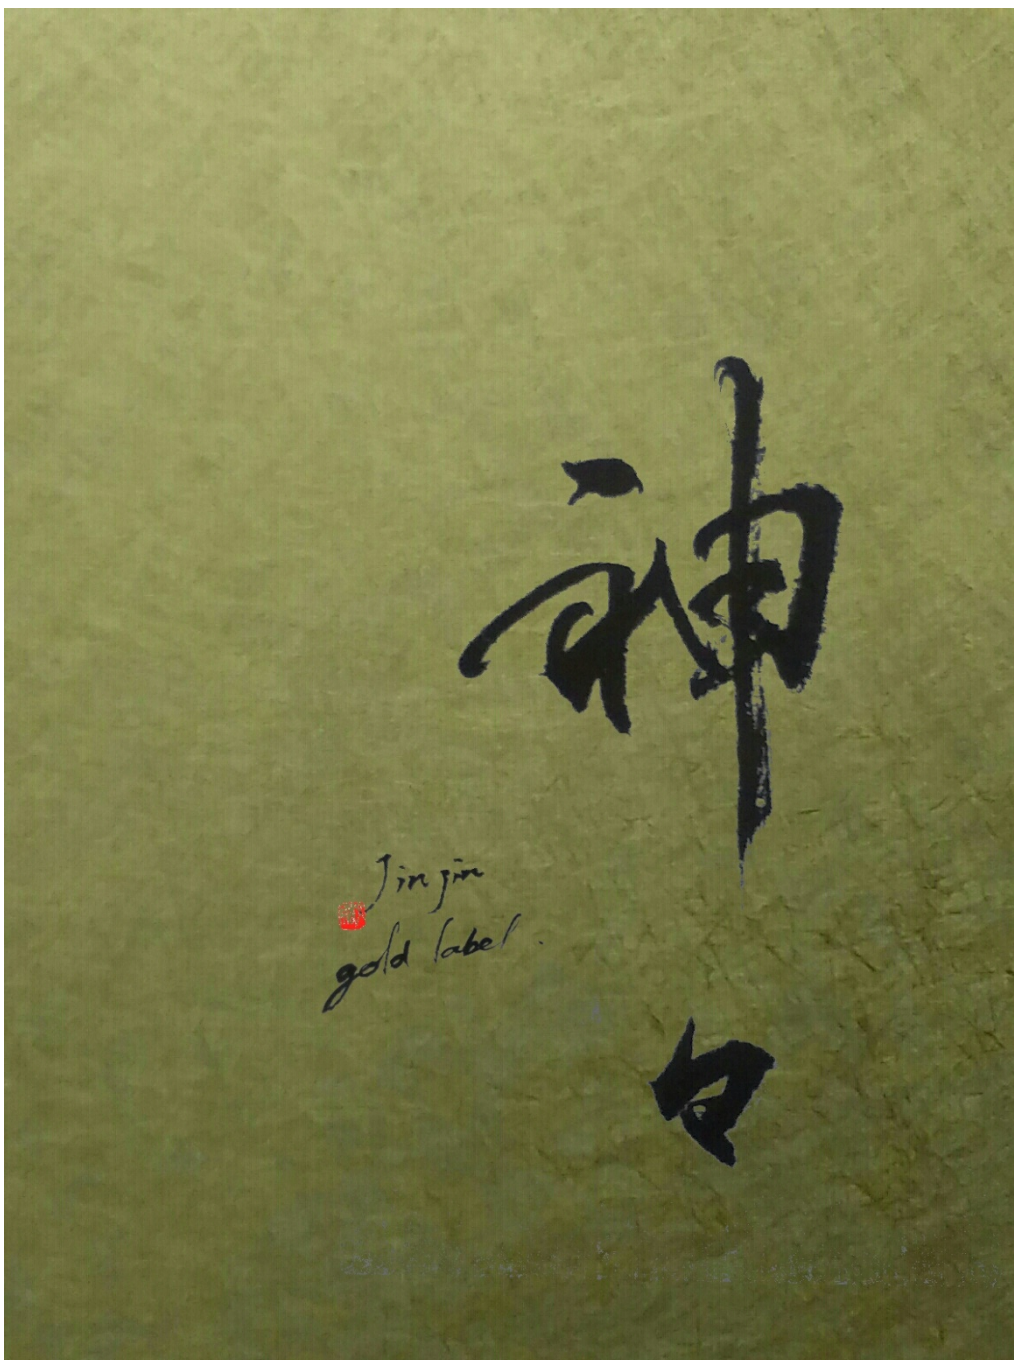 神々
Jin jin
gold label.